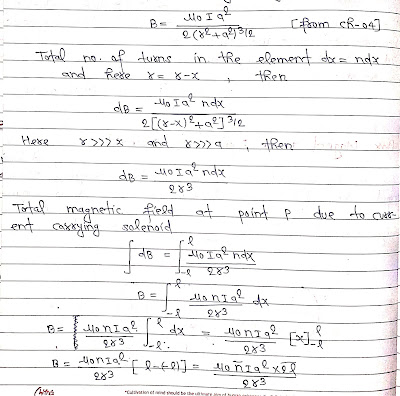 B = μ0 I a² / 2(r²+a²)^3/2 [from ch-04]
Total no. of turns in the element dx = ndx
and here r = r-x , then
dB = μ0 I a² ndx / 2[(r-x)²+a²]^3/2
Here r>>>x and r>>>a ; then
dB = μ0 I a² ndx / 2r³
Total magnetic field at point P due to curr-
ent carrying solenoid
∫ dB = ∫_-l^l μ0 I a² ndx / 2r³
B = ∫_-l^l μ0 n I a² / 2r³ dx
B = μ0 n I a² / 2r³ ∫_-l^l dx = μ0 n I a² / 2r³ [x]_-l^l
B = μ0 n I a² / 2r³ [l-(-l)] = μ0 n I a² × 2l / 2r³
"Cultivation of mind should be the ultimate aim of human